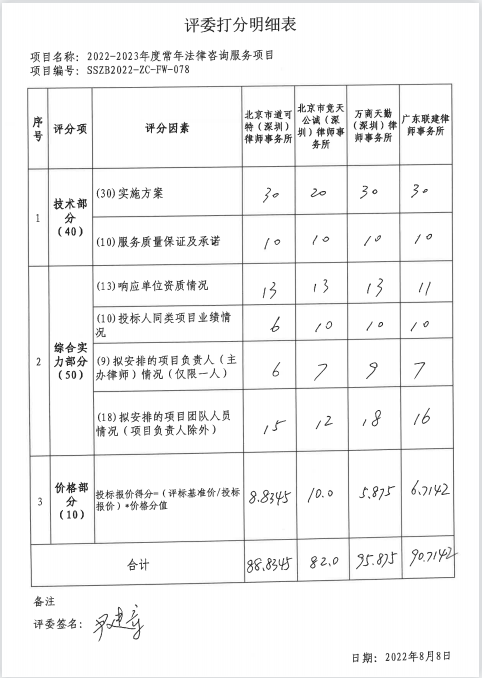 评委打分明细表
项目名称：2022-2023年度常年法律咨询服务项目
项目编号：SSZB2022-ZC-FW-078
序号 评分项 评分因素 北京市道可特（深圳）律师事务所 北京市竞天公诚（深圳）律师事务所 万商天勤（深圳）律师事务所 广东联建律师事务所
1 技术部分（40） (30)实施方案 30 20 30 30
(10)服务质量保证及承诺 10 10 10 10
2 综合实力部分（50） (13)响应单位资质情况 13 13 13 11
(10)投标人同类项目业绩情况 6 10 10 10
(9)拟安排的项目负责人（主办律师）情况（仅限一人） 6 7 9 7
(18)拟安排的项目团队人员情况（项目负责人除外） 15 12 18 16
3 价格部分（10） 投标报价得分=（评标基准价/投标报价）*价格分值 8.8345 10.0 5.875 6.7142
合计 88.8345 82.0 95.875 90.7142
备注
评委签名：
日期：2022年8月8日